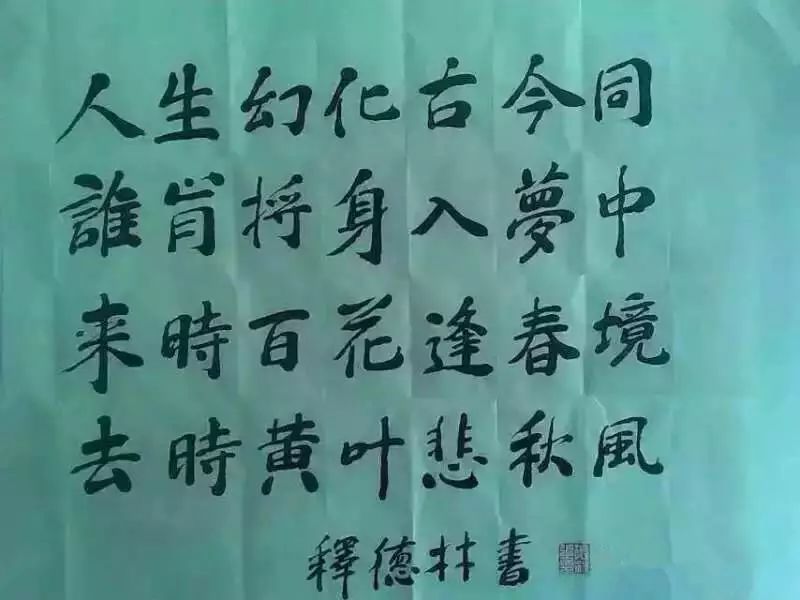 人生幻化古今同
誰肯將身入夢中
来時百花逢春境
去時黄叶悲秋風
釋德林书